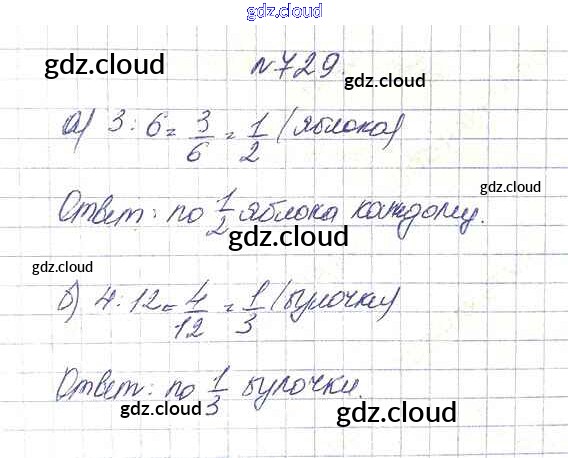 gdz.cloud
gdz.cloud № 729.
gdz.cloud
а) 3 : 6 = 3/6 = 1/2 (яблока)
gdz.cloud
Ответ: по 1/2 яблока каждому.
gdz.cloud
gdz.cloud
б) 4 : 12 = 4/12 = 1/3 (булочки)
Ответ: по 1/3 булочки.
gdz.cloud
gdz.cloud